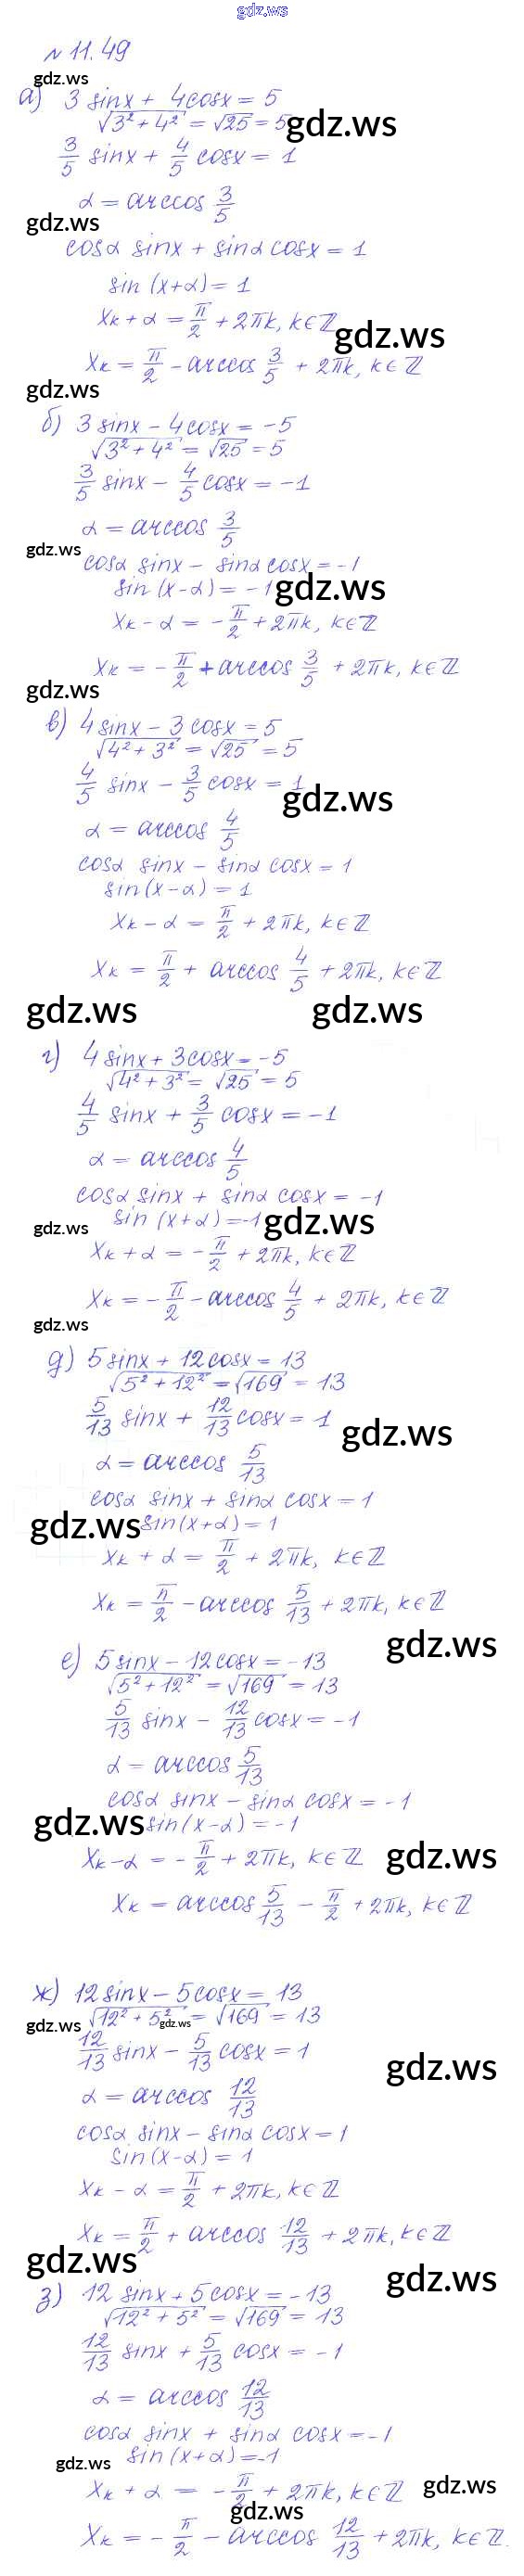 gdz.ws
№11.49
gdz.ws
а) 3 sinx + 4cosx = 5
√(3² + 4²) = √25 = 5 gdz.ws
3/5 sinx + 4/5 cosx = 1
α = arccos 3/5
gdz.ws
cosα sinx + sinα cosx = 1
sin (x+α) = 1
xₖ + α = π/2 + 2πk, k∈ℤ gdz.ws
xₖ = π/2 - arccos 3/5 + 2πk, k∈ℤ
gdz.ws
б) 3 sinx - 4cosx = -5
√(3² + 4²) = √25 = 5
3/5 sinx - 4/5 cosx = -1
α = arccos 3/5
gdz.ws
cosα sinx - sinα cosx = -1
sin (x-α) = -1 gdz.ws
xₖ - α = -π/2 + 2πk, k∈ℤ
xₖ = -π/2 + arccos 3/5 + 2πk, k∈ℤ
gdz.ws
в) 4sinx - 3cosx = 5
√(4² + 3²) = √25 = 5
4/5 sinx - 3/5 cosx = 1 gdz.ws
α = arccos 4/5
cosα sinx - sinα cosx = 1
sin(x-α) = 1
xₖ - α = π/2 + 2πk, k∈ℤ
xₖ = π/2 + arccos 4/5 + 2πk, k∈ℤ
gdz.ws gdz.ws
г) 4sinx + 3cosx = -5
√(4² + 3²) = √25 = 5
4/5 sinx + 3/5 cosx = -1
α = arccos 4/5
cosα sinx + sinα cosx = -1
gdz.ws sin (x+α) = -1 gdz.ws
xₖ + α = -π/2 + 2πk, k∈ℤ
xₖ = -π/2 - arccos 4/5 + 2πk, k∈ℤ
gdz.ws
д) 5sinx + 12cosx = 13
√(5² + 12²) = √169 = 13
5/13 sinx + 12/13 cosx = 1
gdz.ws
α = arccos 5/13
cosα sinx + sinα cosx = 1
gdz.ws sin(x+α) = 1
xₖ + α = π/2 + 2πk, k∈ℤ
xₖ = π/2 - arccos 5/13 + 2πk, k∈ℤ
gdz.ws
е) 5sinx - 12cosx = -13
√(5² + 12²) = √169 = 13
5/13 sinx - 12/13 cosx = -1
α = arccos 5/13
cosα sinx - sinα cosx = -1
gdz.ws sin(x-α) = -1
xₖ-α = -π/2 + 2πk, k∈ℤ gdz.ws
xₖ = arccos 5/13 - π/2 + 2πk, k∈ℤ
ж) 12sinx - 5cosx = 13
gdz.ws √(12² + 5²) gdz.ws = √169 = 13
12/13 sinx - 5/13 cosx = 1
gdz.ws
α = arccos 12/13
cosα sinx - sinα cosx = 1
sin(x-α) = 1
xₖ - α = π/2 + 2πk, k∈ℤ
xₖ = π/2 + arccos 12/13 + 2πk, k∈ℤ
gdz.ws gdz.ws
з) 12 sinx + 5cosx = -13
√(12² + 5²) = √169 = 13
12/13 sinx + 5/13 cosx = -1
α = arccos 12/13
cosα sinx + sinα cosx = -1
gdz.ws sin (x+α) = -1
xₖ + α = -π/2 + 2πk, k∈ℤ gdz.ws
gdz.ws
xₖ = -π/2 - arccos 12/13 + 2πk, k∈ℤ.